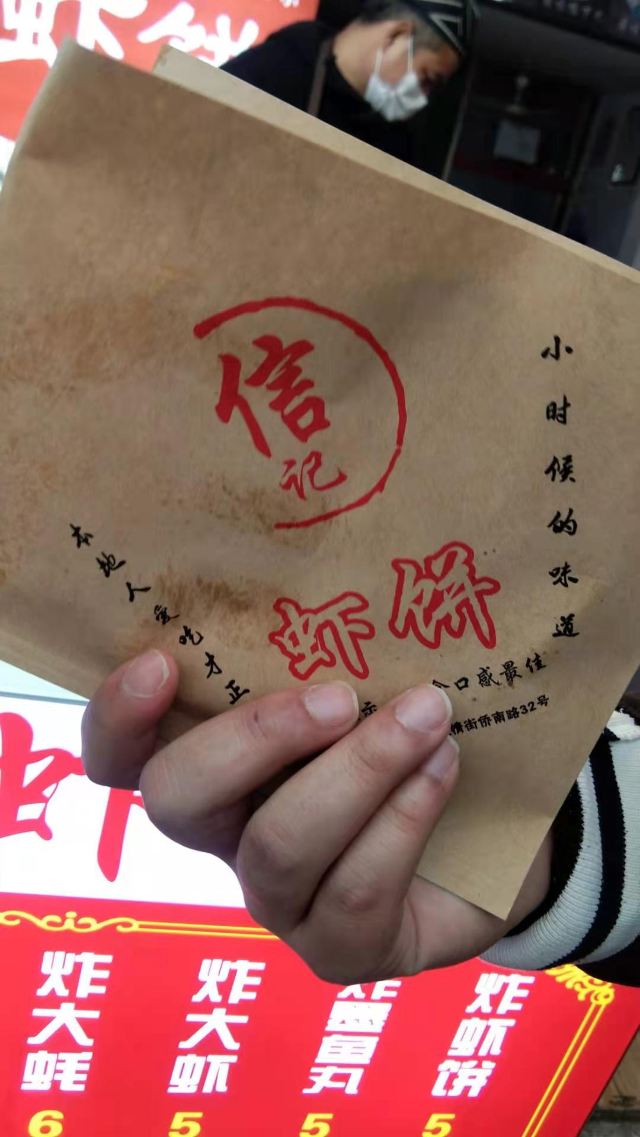 虾饼
信
记
小时候的味道
本地人爱吃才正
虾饼
口感最佳
情街侨南路32号
虾
炸大蚝
6
炸大虾
5
炸墨鱼丸
5
炸虾饼
5